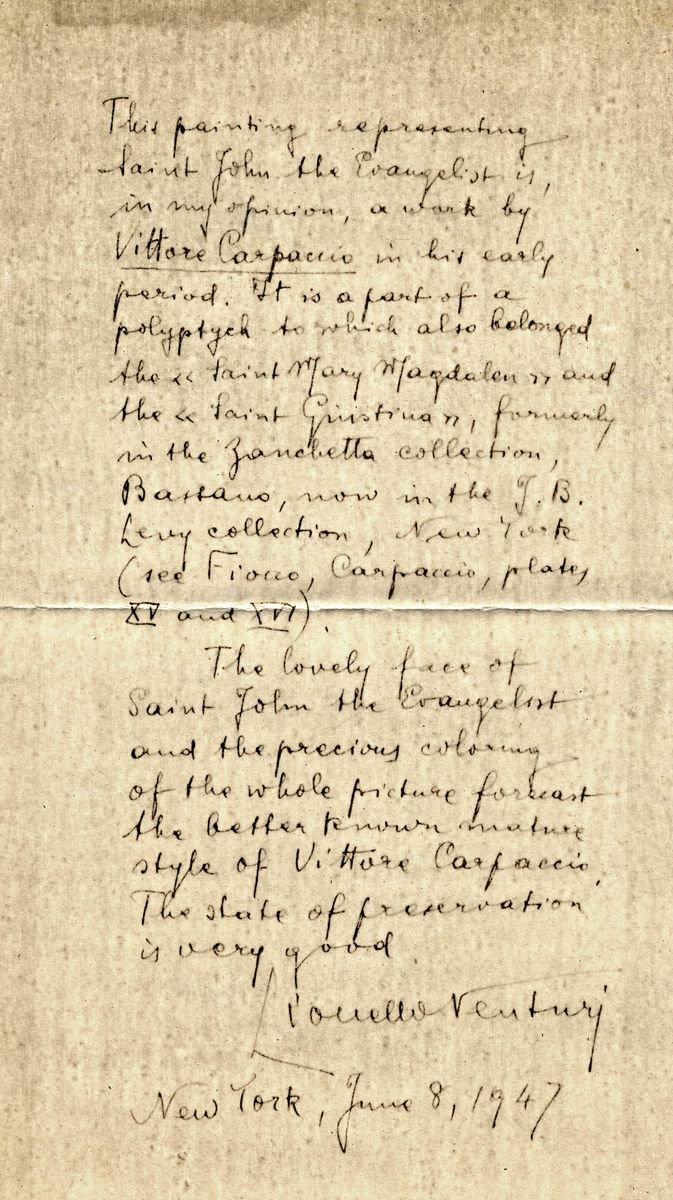 This painting representing
Saint John the Evangelist is,
in my opinion, a work by
Vittore Carpaccio in his early
period. It is a part of a
polyptych to which also belonged
the « Saint Mary Magdalen » and
the « Saint Giustina », formerly
in the Zanchetta collection,
Bassano, now in the J. B.
Levy collection, New York
(see Fiocco, Carpaccio, plates
XV and XVI).
The lovely face of
Saint John the Evangelist
and the precious coloring
of the whole picture forecast
the better known mature
style of Vittore Carpaccio.
The state of preservation
is very good.
Lionello Venturi
New York, June 8, 1947